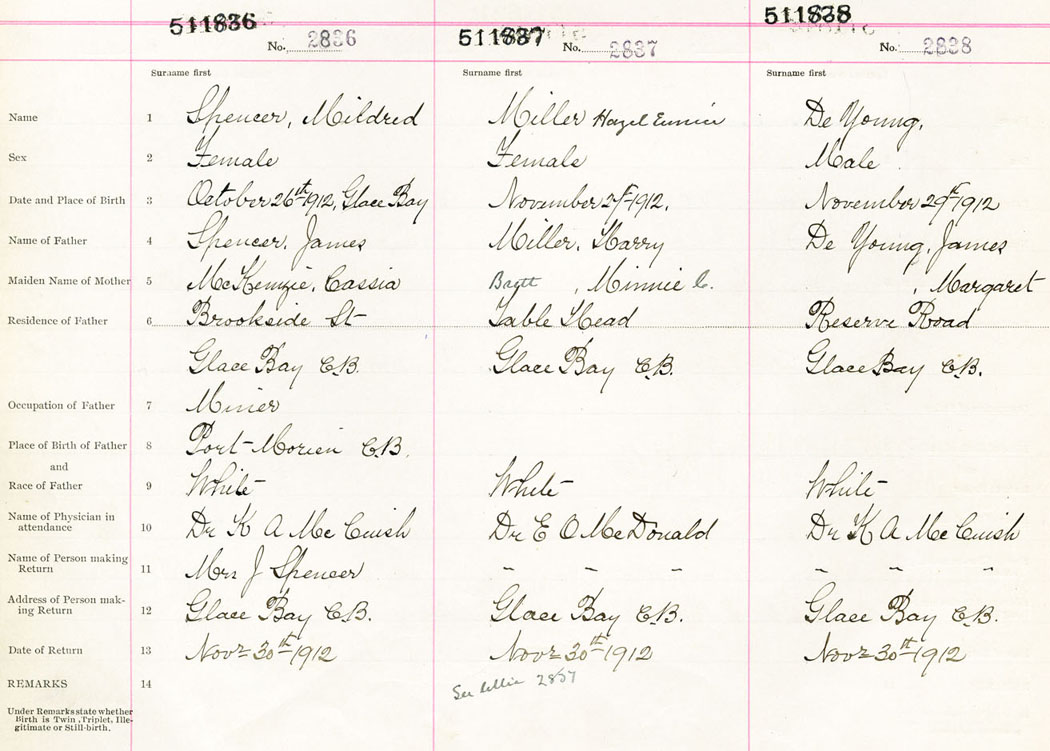 511836
No. 2836
511837
No. 2837
511838
No. 2838
Surname first
Surname first
Surname first
Name 1 Spencer, Mildred
Miller Hazel Eunice
De Young,
Sex 2 Female
Female
Male
Date and Place of Birth 3 October 26th 1912, Glace Bay
November 1912.
November 29th 1912
Name of Father 4 Spencer, James
Miller, Harry
De Young, James
Maiden Name of Mother 5 McKenzie, Cassia
, Minnie C.
, Margaret
Residence of Father 6 Brookside St
Table Head
Reserve Road
Glace Bay C.B.
Glace Bay C.B.
Glace Bay C.B.
Occupation of Father 7 Miner
Place of Birth of Father 8 Port Morien C.B.
and
Race of Father 9 White
White
White
Name of Physician in
attendance 10 Dr K A McCuish
Dr E O McDonald
Dr K A McCuish
Name of Person making
Return 11 Mrs J Spencer
" " "
" " "
Address of Person mak-
ing Return 12 Glace Bay C.B.
Glace Bay C.B.
Glace Bay C.B.
Date of Return 13 Novr 30th 1912
Novr 30th 1912
Novr 30th 1912
REMARKS 14
See 2857
Under Remarks state whether
Birth is Twin, Triplet, Ille-
gitimate or Still-birth.